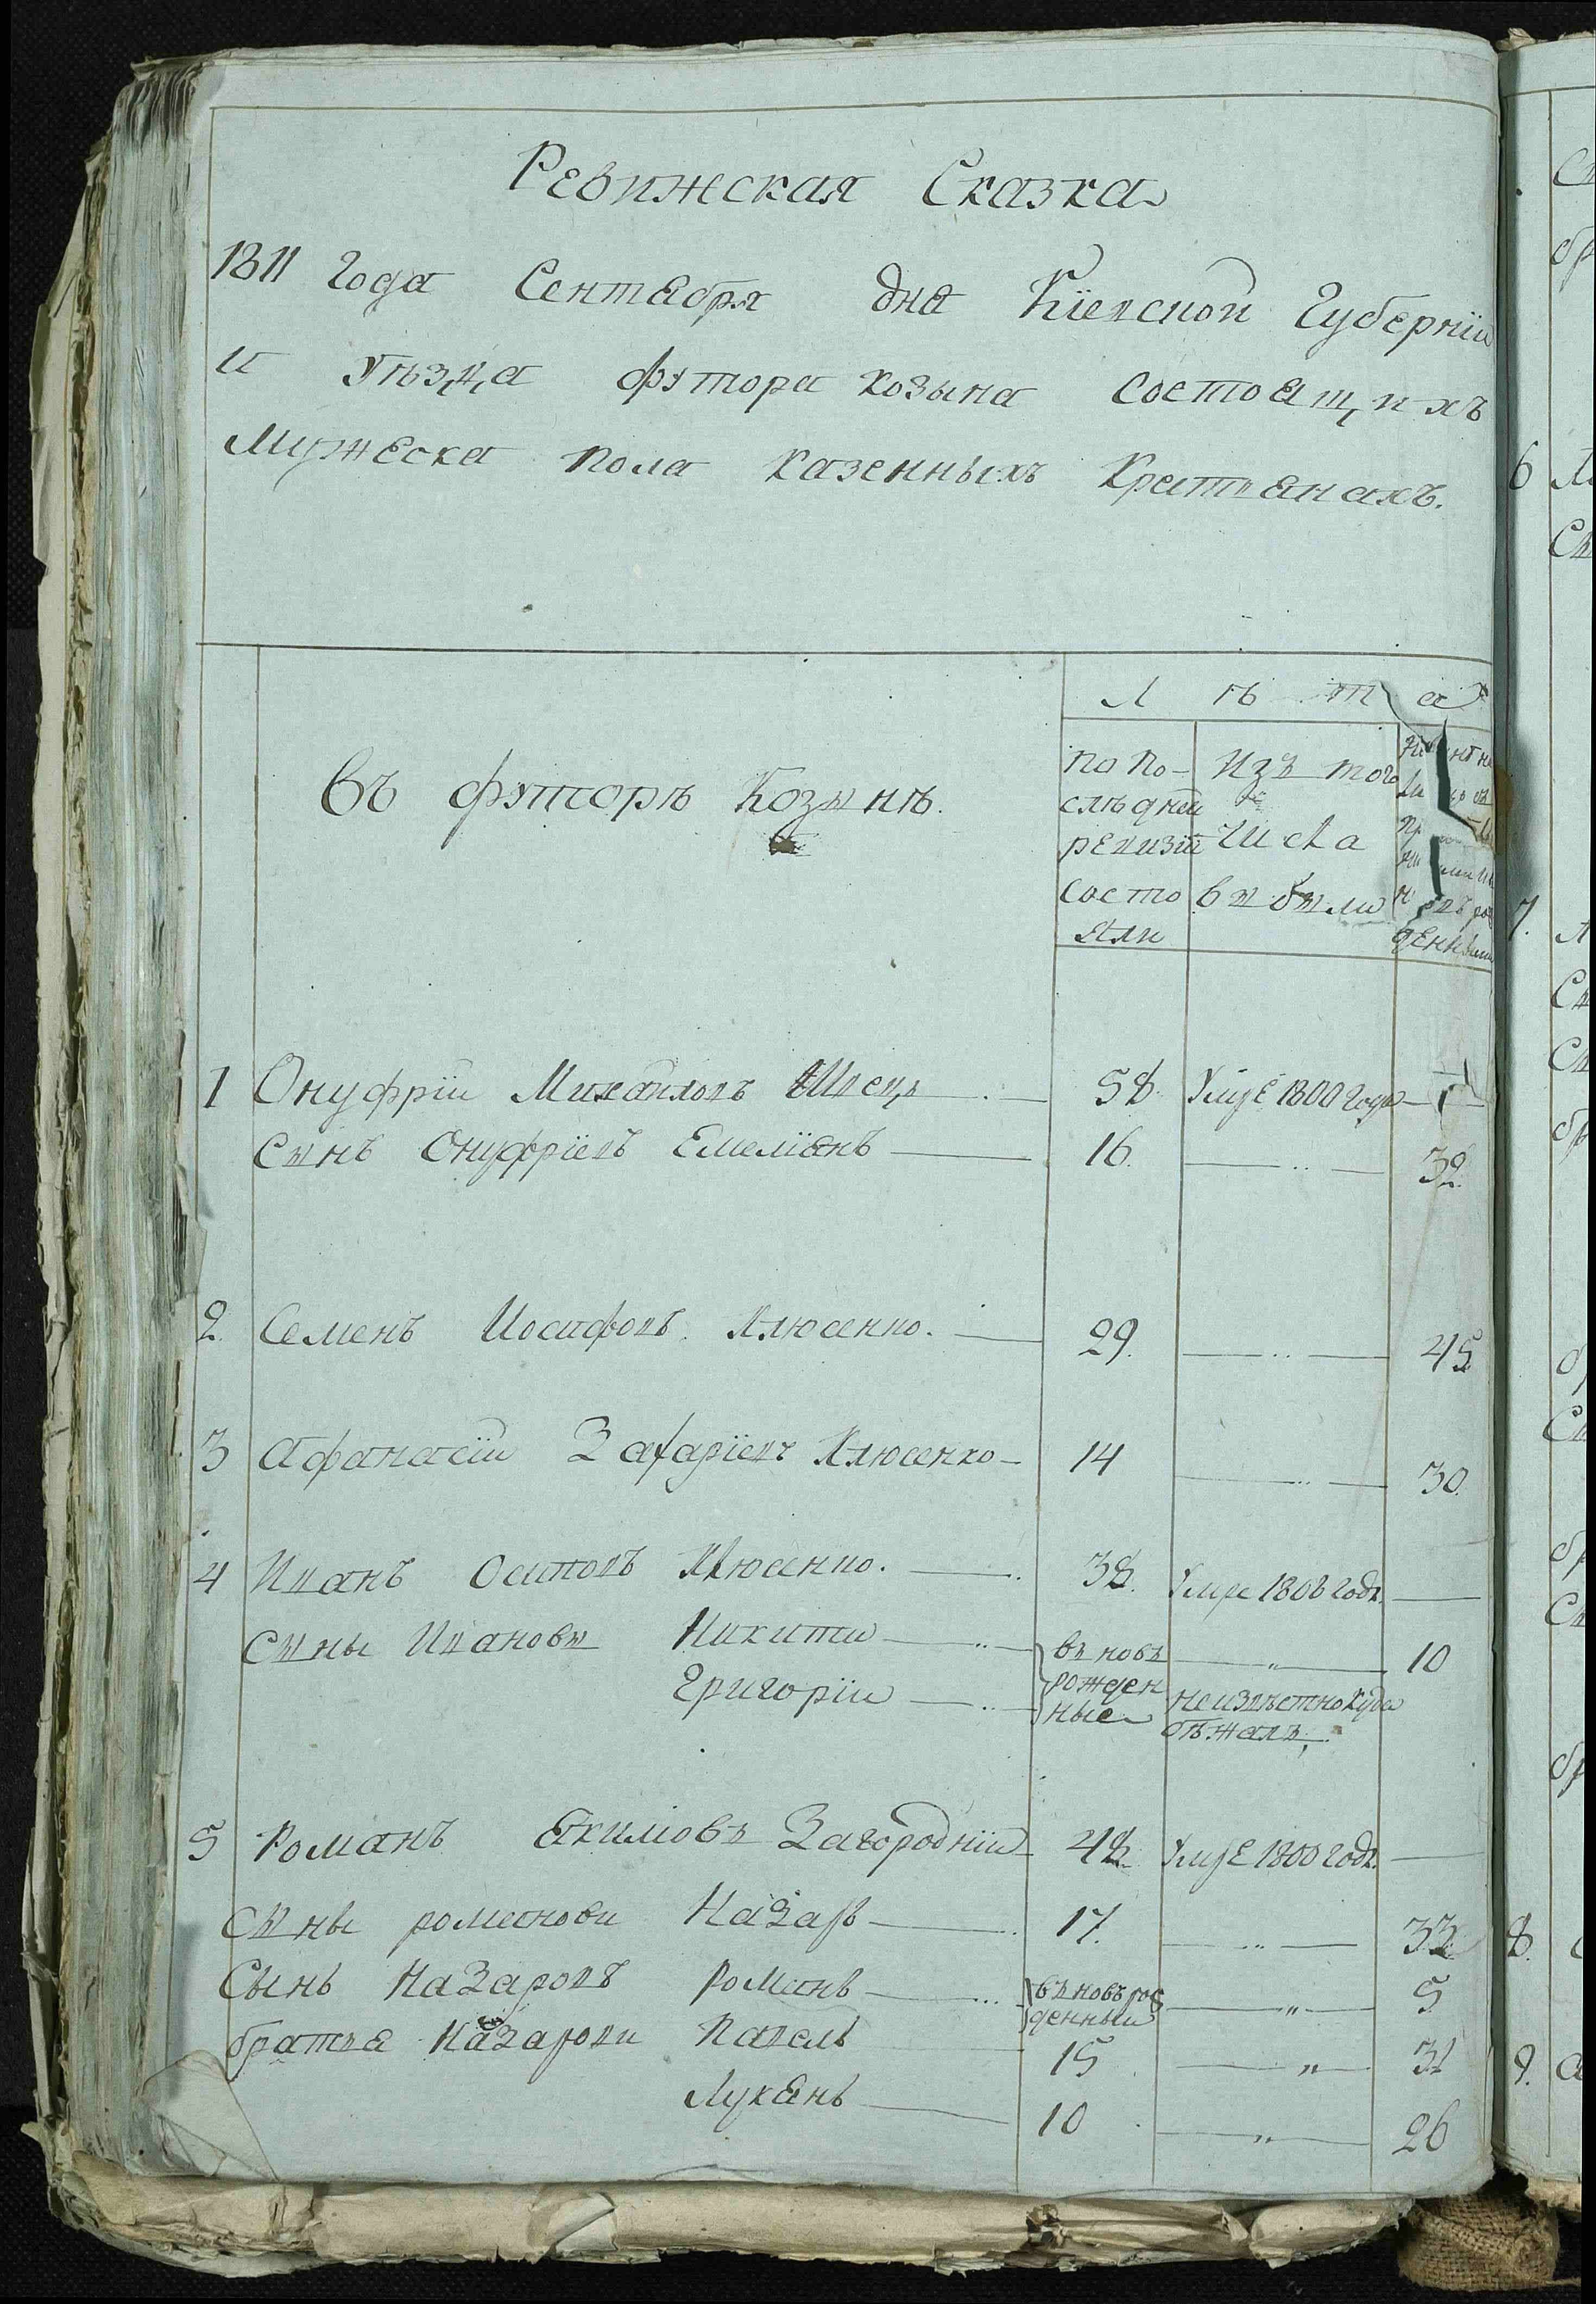 Ревижская Сказка
1811 Года Сентября дня Кіевской Губерніи
и уѣзда футора козына состоящихъ
Мужеска пола казенныхъ Крестянахъ.
Лѣта
въ футорѣ Козынѣ.
по по-
слѣдней
ревизіи
состо
яли
изъ того
числа
выбыли
денными
1 Онуфрій Михайловъ Швецъ 58. Умре 1800 года
Сынъ Онуфріевъ Емеліянъ 16. 32.
2. Семенъ Иосифовъ Клюсенко. 29. 45
3 Афанасій Захаріевъ Клюсенко 14 30.
4 Иванъ Осиповъ Клюсенко. 38. Умре 1808 года.
Сыны Ивановы Никита вновь 10
Григорій рожден
ные неизвѣстно куда
бѣжалъ,
5 Романъ Якимовъ Загородній 48 Умре 1800 года.
Сыны романови Назаръ 17. 33.
Сынъ Назаровъ Романъ вновь рож
денный 5
братья Назарови Павелъ 15 31
Лукянъ 10 26
6
7.
8.
9.